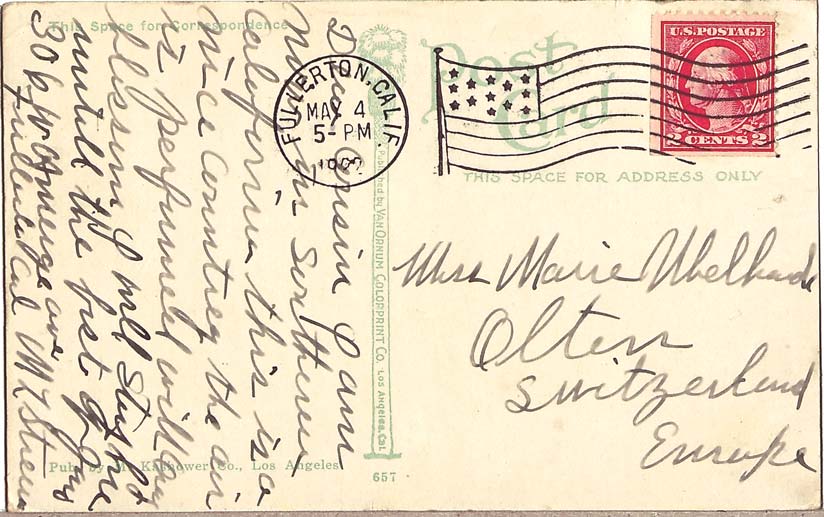 This Space for Correspondence
Dear Cousin I am
now in Southern
California this is a
nice Countrey the air
is perfumed with
blessom I will Stay
untill the first of
306 W Amerige ave
Fullerton Cal
Published by VAN ORNUM COLORPRINT CO. LOS ANGELES, CAL.
Pub. by M. Kashower Co., Los Angeles
657
Post
Card
THIS SPACE FOR ADDRESS ONLY
FULLERTON, CALIF.
MAY 4
5-PM
U.S. POSTAGE
2 CENTS 2
Miss Marie
Olten
Switzerland
Europe